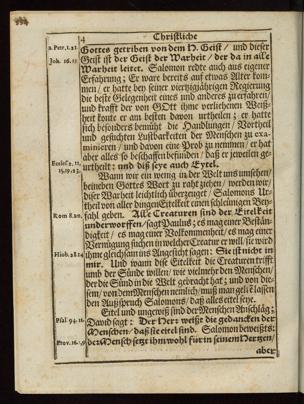 4
Christliche
2. Petr. 1.21
Gottes getriben von dem H. Geist / und dieser
Joh. 16. 13
Geist ist der Geist der Warheit / der da in alle
Warheit leitet. Salomon redt auch aus eigener
Erfahrung; Er ware bereits auf etwas Alter kom-
men / er hatte bey seiner vierzigjährigen Regierung
die beste Gelegenheit eines und anderes zu erfahren /
und krafft der von GOtt ihme verliehenen Weiß-
heit konte er am besten davon urtheilen; er hatte
sich besonders bemüht die Handlungen / Vortheil
und gesuchten Lustbarkeiten der Menschen zu exa-
miniren / und davon eine Prob zu nemmen / er hat
aber alles so beschaffen befunden / daß er jeweilen ge-
urtheilt: und diß seye auch Eytel.
Wann wir ein wenig in der Welt uns umsehen /
beineben Gottes Wort zu raht ziehen / werden wir /
diser Warheit leichtlich überzeuget / Salomons Ur-
theil von aller dingen Eitelkeit einen schleunigen Bey-
Rom 8.20.
fahl geben. Alle Creaturen sind der Eitelkeit
underworffen / sagt Paulus; es mag einer Bestän-
digkeit / es mag einer Vollkommenheit / es mag einer
Vernügung suchen in welcher Creatur er will / sie wird
ihme gleichsam ins Angesicht sagen: Sie ist nicht in
mir. Und wann dise Eitelkeit die Creaturen trifft
umb der Sünde willen / wie vielmehr den Menschen /
der die Sünd in die Welt gebracht hat; und von die-
sem / von dem Menschen nemlich / muß man gelten lassen
den Außspruch Salomons / daß alles eitel seye.
Eitel und ungewiß sind der Menschen Anschläg;
Psal. 94. 11.
David sagt: Der Herr weißt die gedancken der
Menschen / daß sie eitel sind. Salomon beweißts:
Prov. 16. 1, 9
der Mensch setze ihm wohl für in seinem Hertzen /
aber